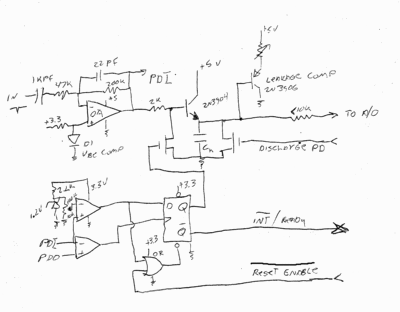 22 PF
+5V
1KPF
47K
200K
PDI
+5V
LEAKAGE COMP
2N3906
IN
+5
OA
2K
2N3904
10K
TO A/D
+3.3
D1
VBE COMP
CH
DISCHARGE PD
3.3V
+3.3
2.2K
1.2V
D
Q
Q
INT/READY
PDI
PDO
+3.3
OR
RESET ENABLE